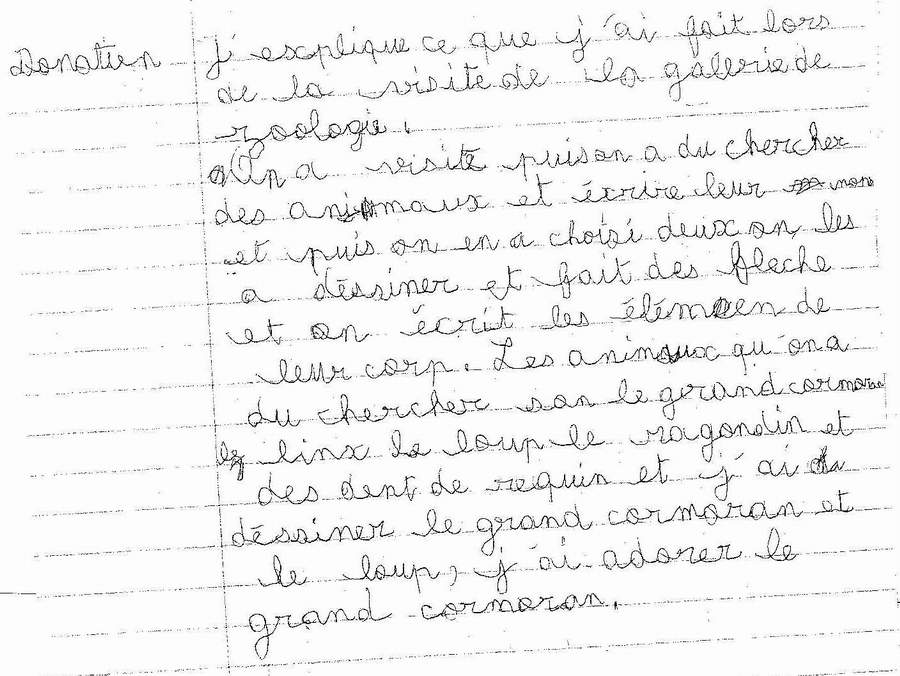 Donatien j'explique ce que j'ai fait lors
de la visite de la gallerie de
zoologie.
On a visité puis on a du chercher
des animaux et écrire leur nom
et puis on en a choisi deux on les
a déssiner et fait des fleche
et on écrit les élémen de
leur corp. Les animaux qu'on a
du chercher son le grand cormoran
le linx le loup le ragondin et
des dent de requin et j'ai
déssiner le grand cormoran et
le loup, j'ai adorer le
grand cormoran.